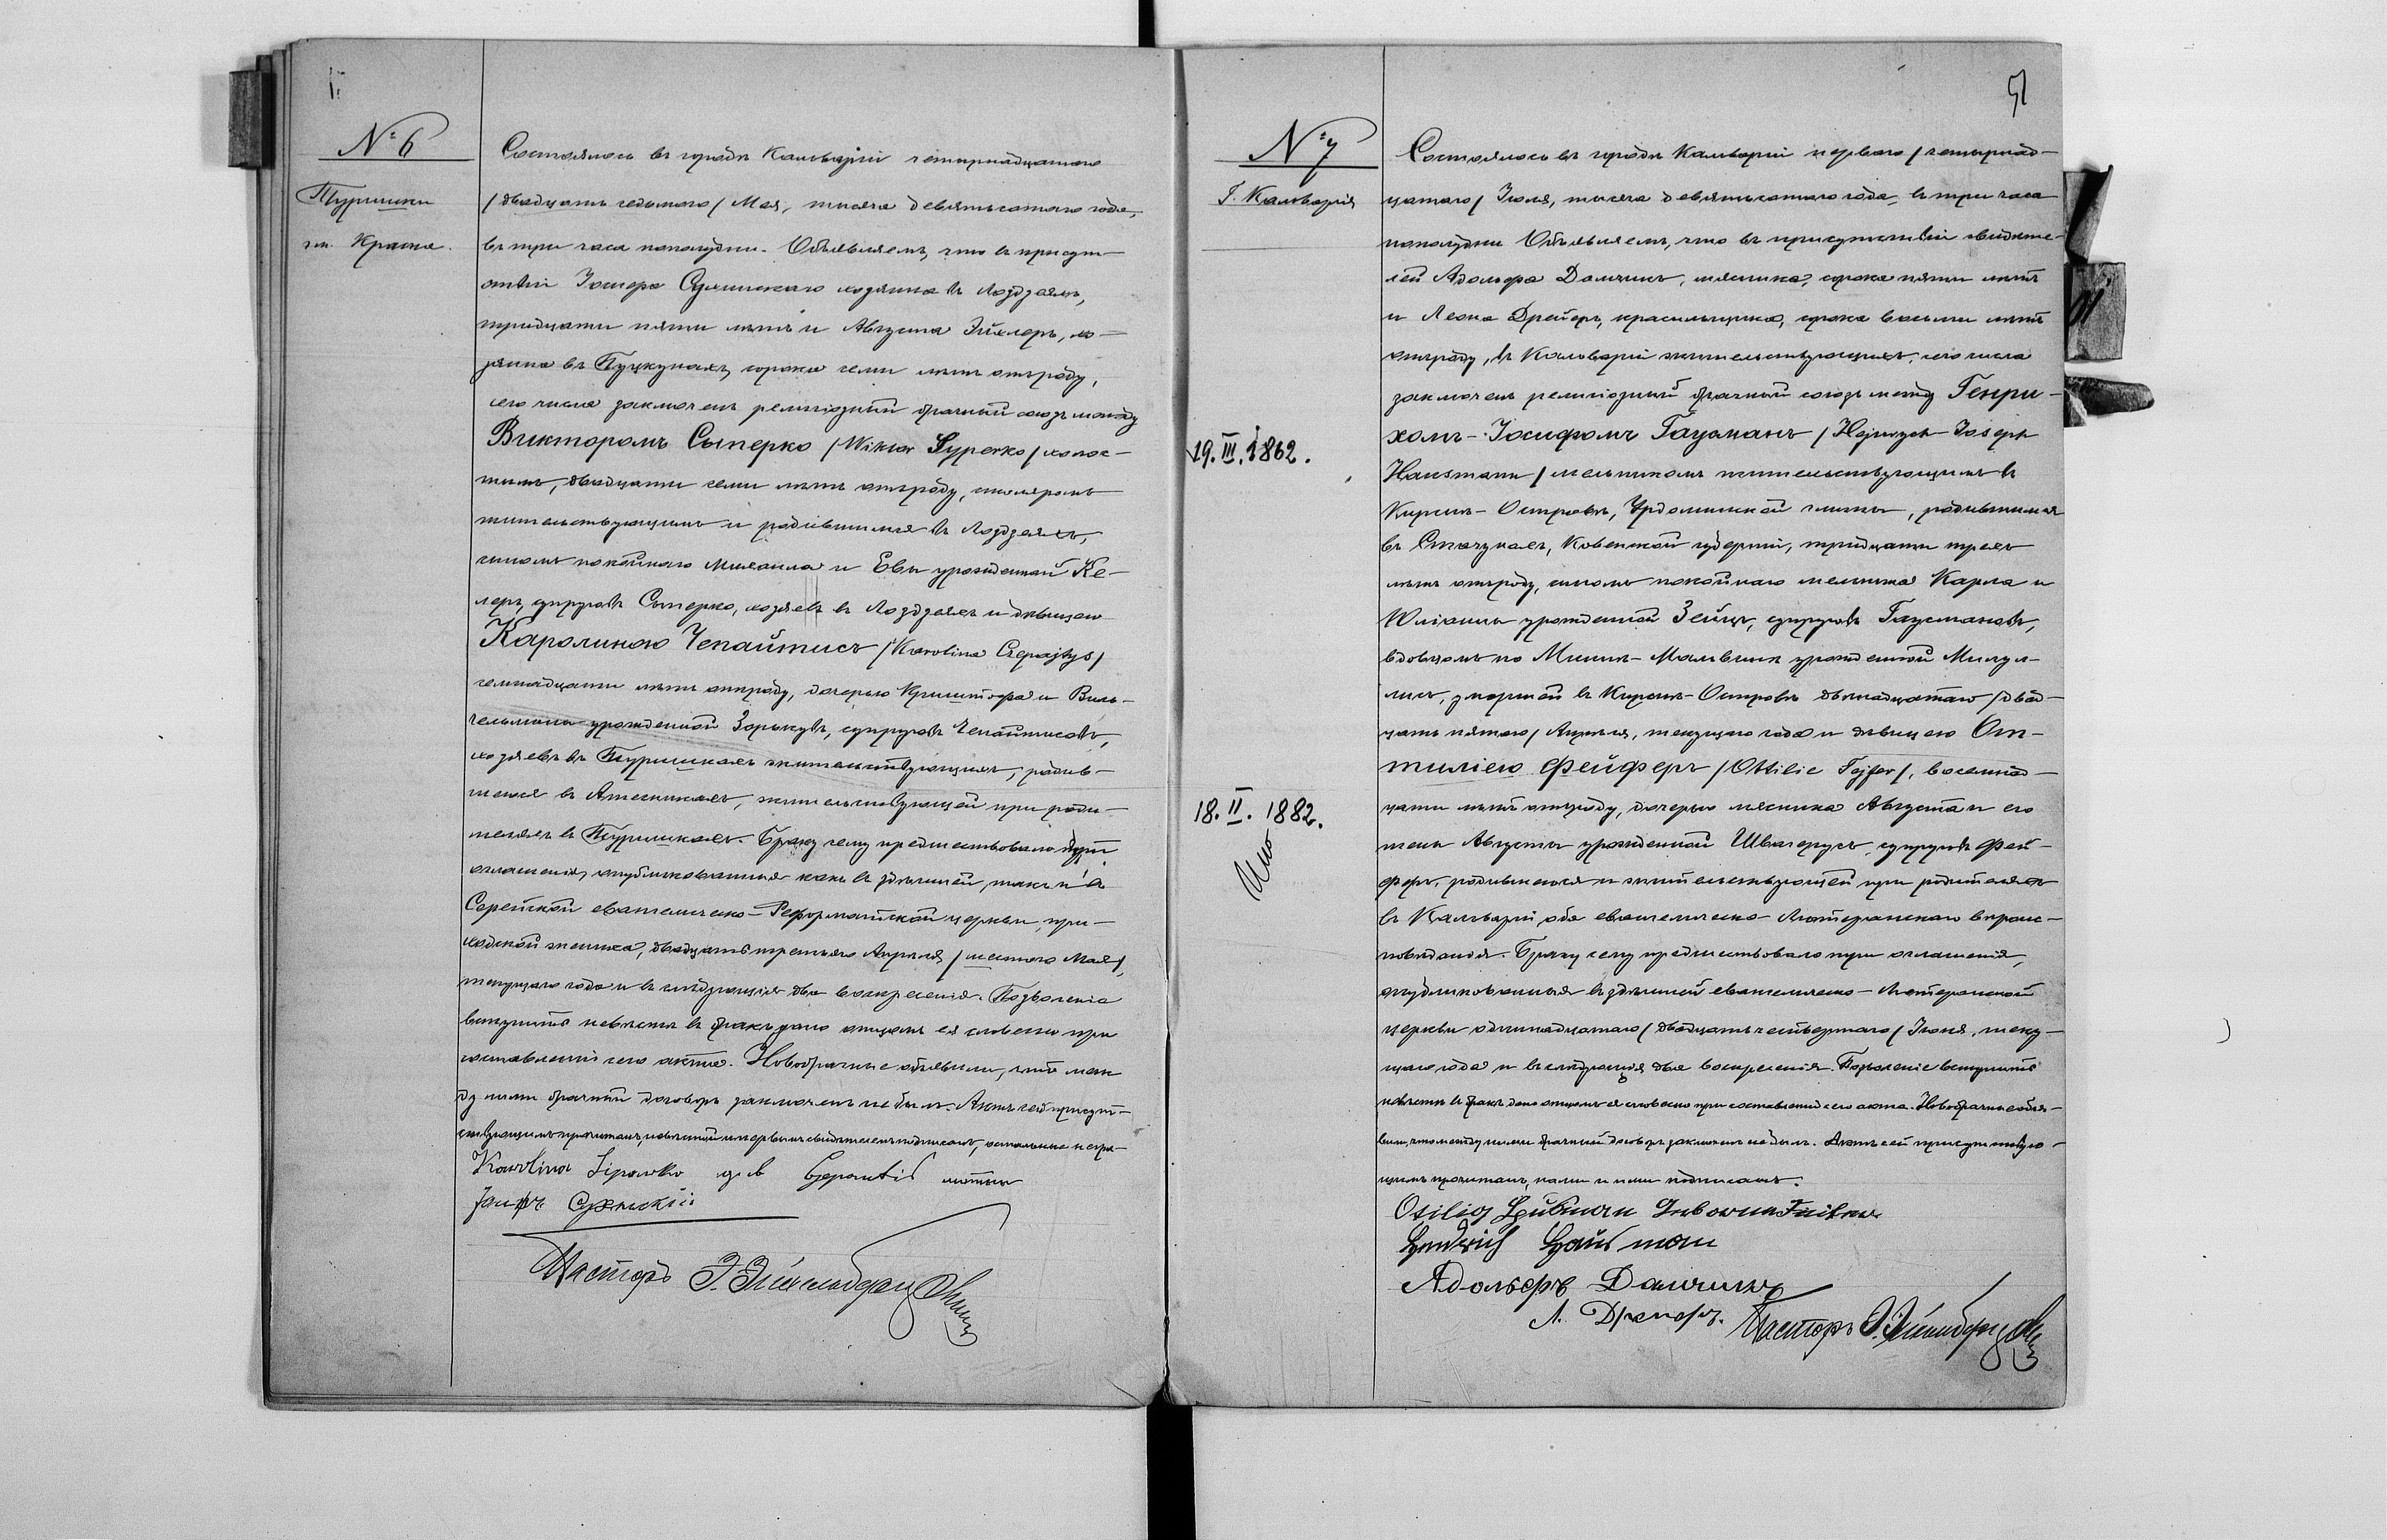 № 6
Туришки
гм. Красна.
Состоялось въ городѣ Кальваріи четырнадцатаго
/двадцать седьмого/ Мая, тысяча девятьсотаго года,
въ три часа пополудни. Объявляемъ, что въ присут-
ствіи Іосифа хозяина въ Лоздзеяхъ,
тридцати пяти лѣтъ и Августа Эйхлеръ, хо-
зяина въ сорока семи лѣтъ отъ роду,
сего числа заключенъ религіозный брачный союзъ между
Викторомъ Сыперко /Wiktor Syperko/ холос-
тымъ, двадцати семи лѣтъ отъ роду, столяромъ
жительствующимъ и родившимся въ Лоздзеяхъ,
сыномъ покойнаго Михаила и Евы урожденной Ке-
леръ, супруговъ Сыперко, хозяевъ въ Лоздзеяхъ и дѣвицею
Каролиною Чепайтисъ /Karolina Czepajtys/
семнадцати лѣтъ отъ роду, дочерью Криштофа и Виль-
гельмины урожденной супруговъ Чепайтисовъ,
хозяевъ въ Туришкахъ жительствующихъ, родив-
шеюся въ жительствующей при роди-
теляхъ въ Туришкахъ. Браку сему предшествовало три
оглашенія, опубликованныя какъ въ здѣшней, такъ и въ
Серейской евангелическо-Реформатской церкви, при-
ходской жениха, двадцать третьяго Апрѣля /шестого Мая/,
текущаго года и въ слѣдующія два воскресенія. Позволеніе
вступить невѣстѣ въ бракъ дано отцомъ ея словесно при
составленіи сего акта. Новобрачные объявили, что меж-
ду ними брачный договоръ заключенъ не былъ. Актъ сей присут-
ствующимъ прочитанъ, невѣстой и первымъ свидѣтелемъ подписанъ, остальные негра-
мотны
Karolina Siparko geb Czepautis
Пасторъ
№ 7
Г. Кальварія
19. III. 1862.
18. II. 1882.
51
Состоялось въ городѣ Кальваріи перваго /четырнад-
цатаго/ Іюля, тысяча девятьсотаго года, въ три часа
пополудни Объявляемъ, что въ присутствіи свидѣте-
лей Адольфа Даличикъ, мясника, сорока пяти лѣтъ
и Леона Дрейеръ, красильщика, сорока восьми лѣтъ
отъ роду, въ Кальваріи жительствующихъ, сего числа
заключенъ религіозный брачный союзъ между Генри-
хомъ-Іосифомъ Гаусманъ /Hejnrych-Joseph
Hausmann/ мельникомъ жительствующимъ въ
Кирснъ-Островѣ, Урдоминской гмины, родившимся
въ Ковенской губерніи, тридцати трехъ
лѣтъ отъ роду, сыномъ покойнаго мельника Карла и
Юліанны урожденной Зейцъ, супруговъ Гаусмановъ,
вдовцомъ по Минѣ-Мальвинѣ урожденной
умершей въ Кирснъ-Островѣ двѣнадцатаго /двад-
цать пятаго/ Апрѣля, текущаго года и дѣвицею От-
тиліею Фейферъ /Ottilie Fejfer/, восемнад-
цати лѣтъ отъ роду, дочерью мясника Августа и его
жены Августы урожденной супруговъ Фей-
феръ, родившеюся и жительствующей при родителяхъ
въ Кальваріи, оба евангелическо-Лютеранскаго вѣроис-
повѣданія. Браку сему предшествовало три оглашенія,
опубликованныя въ здѣшней евангелическо-Лютеранской
церкви одиннадцатаго /двадцать четвертаго/ Іюня, теку-
щаго года и въ слѣдующія два воскресенія. Позволеніе вступить
невѣстѣ въ бракъ дано отцомъ ея словесно при составленіи сего акта. Новобрачные объя-
вили, что между ними брачный договоръ заключенъ не былъ. Актъ сей присутствую-
щимъ прочитанъ, нами и ними подписанъ.
Hendrich Hausman
Адольфъ Даличикъ
Л. Дрейеръ.
Пасторъ